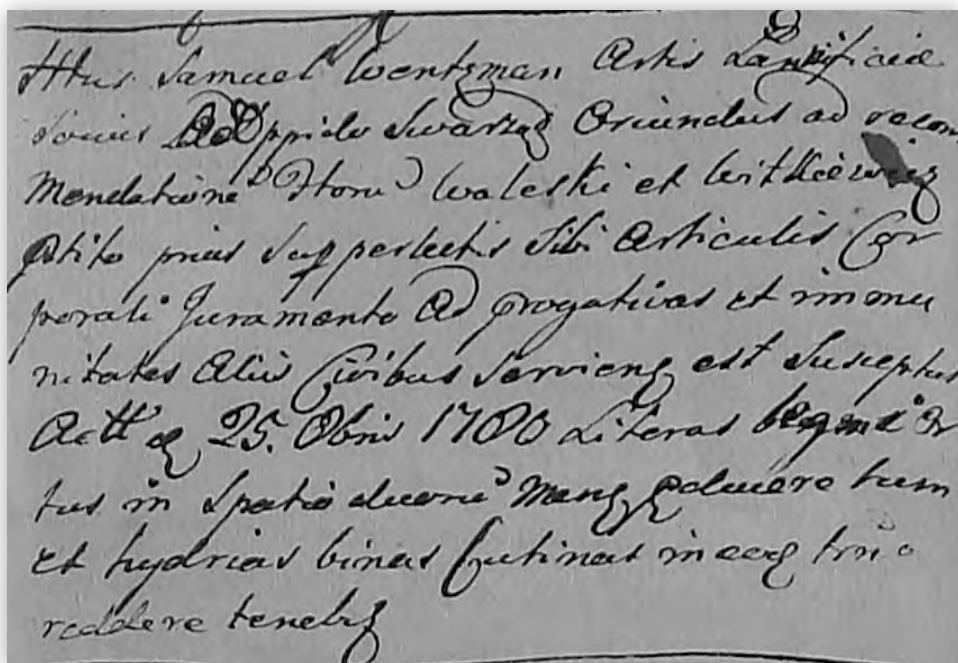 Httus Samuel Wentzman Artis Lanificiae
Socius Oppido Swarzęd Oriundus ad recom
mendatione Honu Waleski et Witkiewicz
ptito prius supperlectis Sibi Articulis Cor
porali Juramento Ad progativas et immu
nitates Aliis Civibus Servieng est Susceptus
Actt 25. Obris 1780 Literas Or
tus in Spatio duoru Mens educere tum
et hydrias binas Cutinas in eeg trno
reddere tenebr